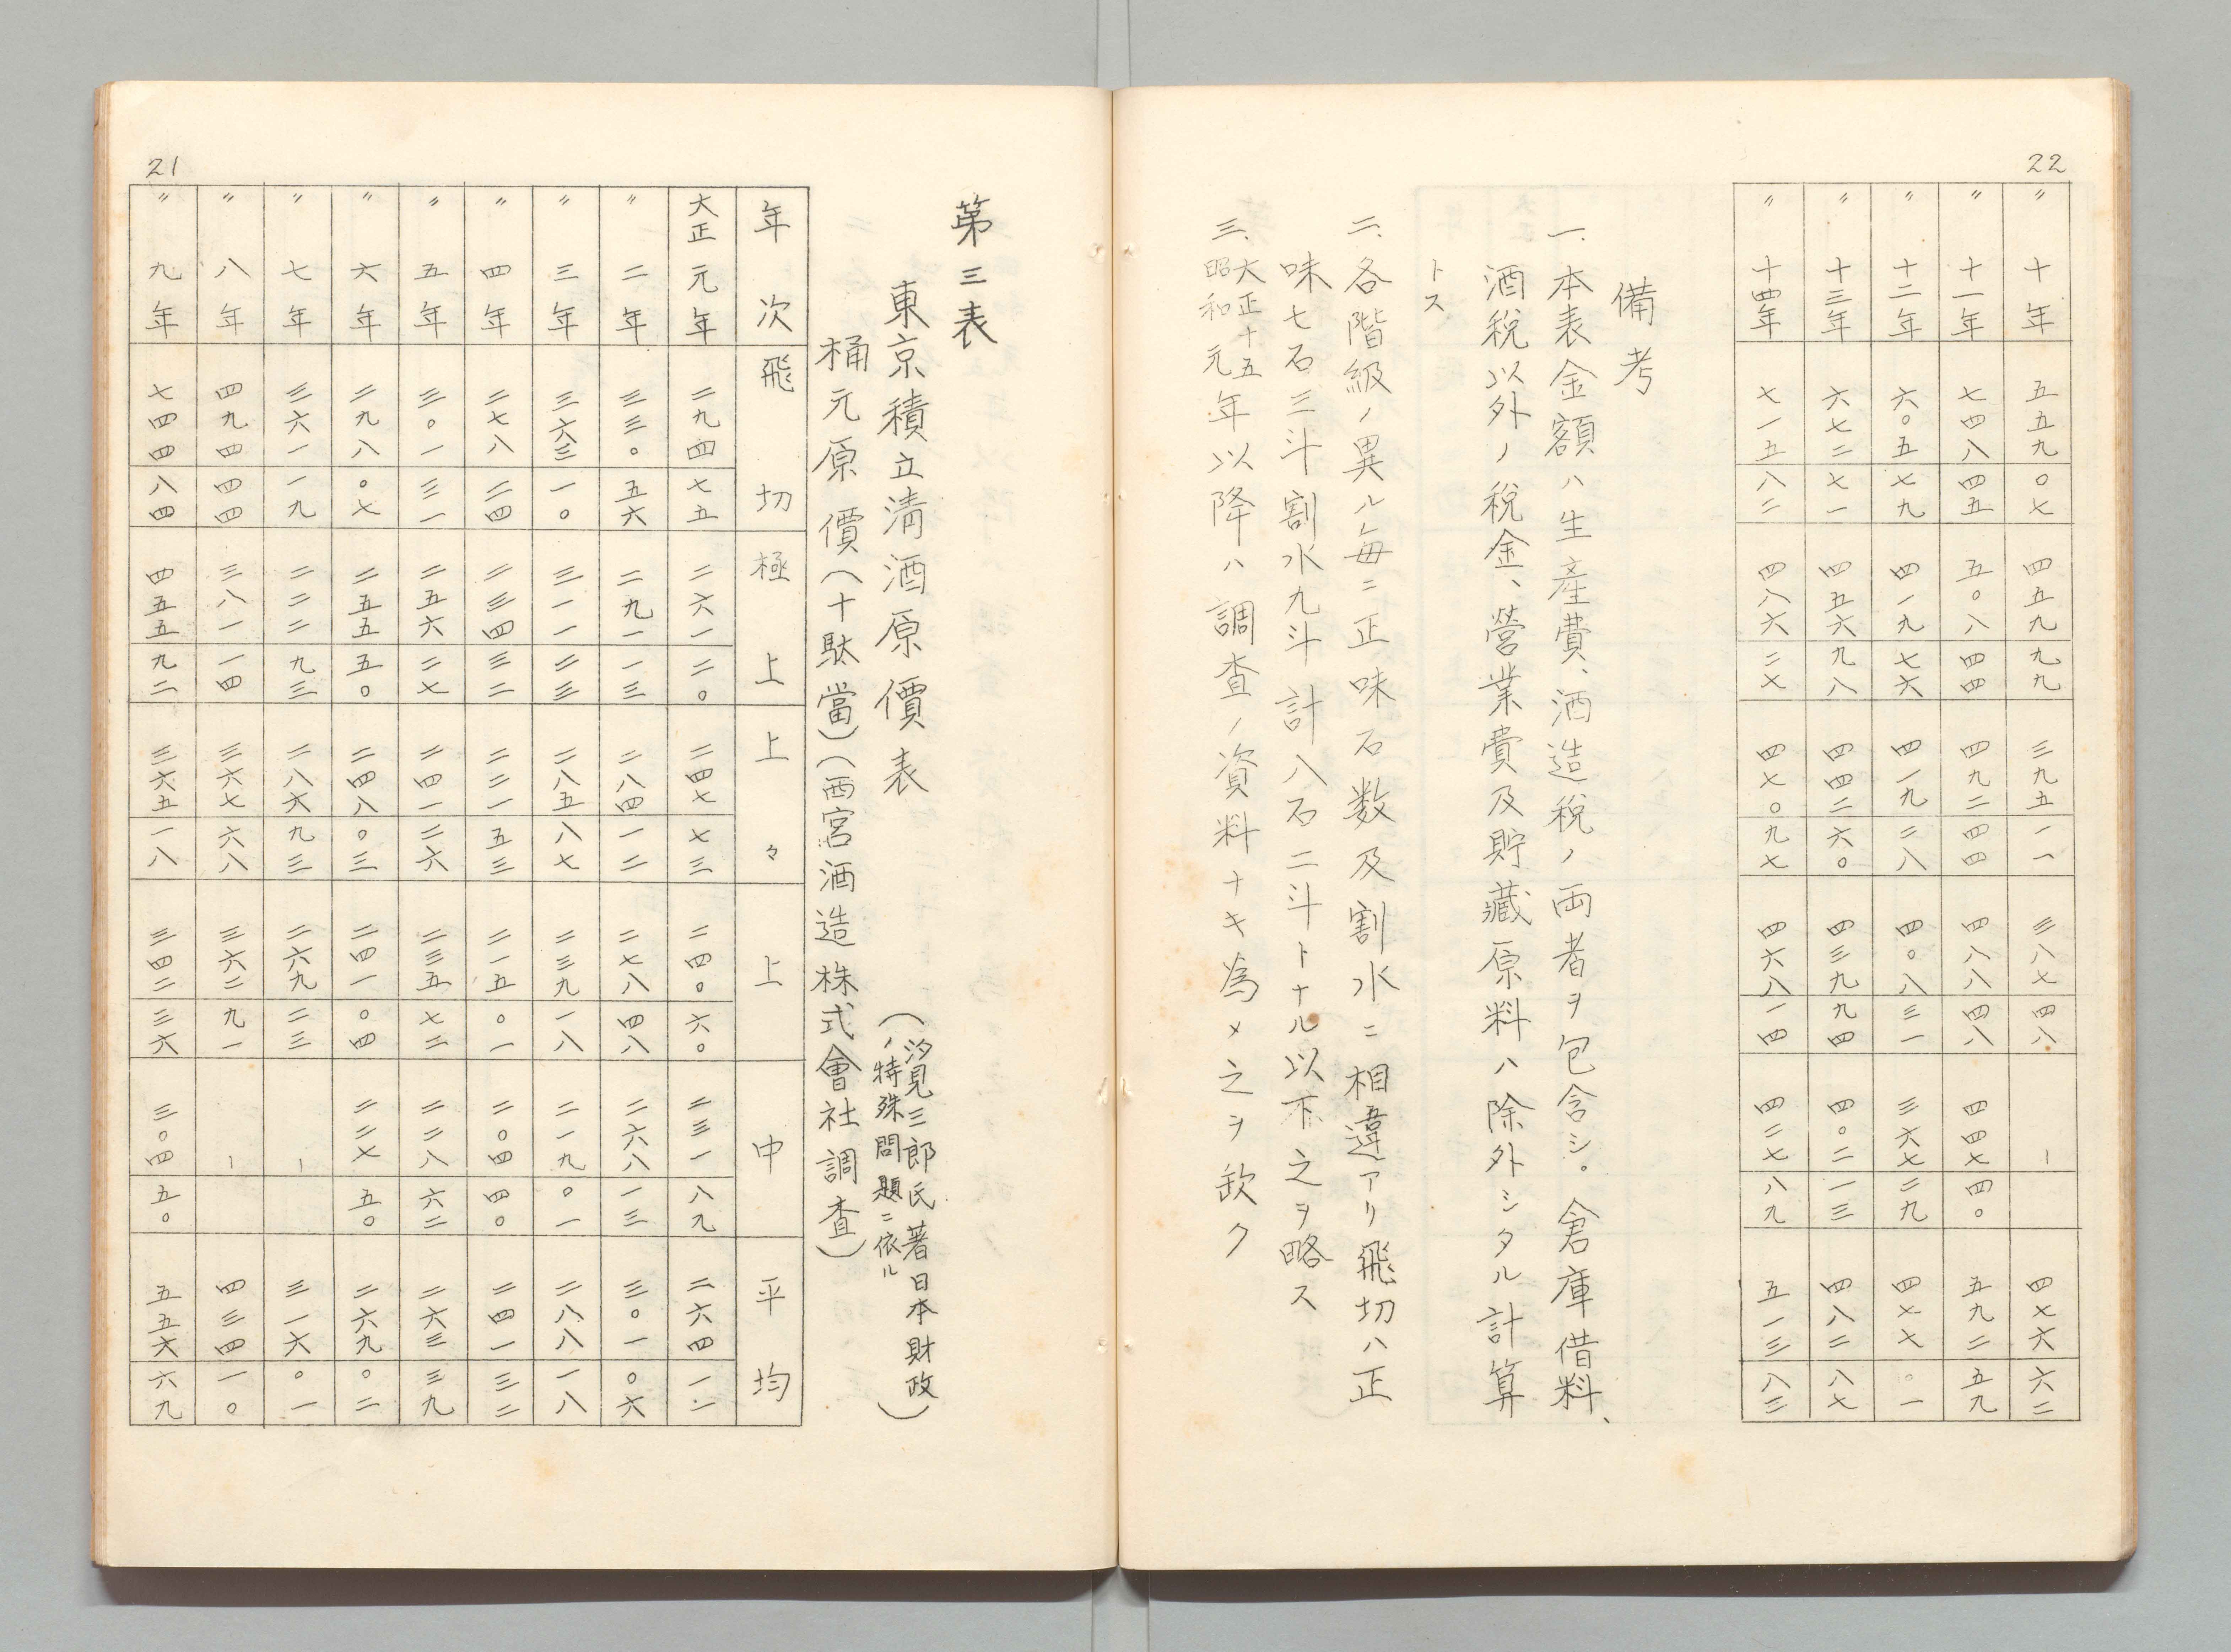 21
第三表
東京積立清酒原價表
(汐見三郎氏著日本財政)
ノ特殊問題ニ依ル
桶元原價(十駄當)(西宮酒造株式會社調査)
年次 飛切 極上 上々 上 中 平均
大正元年 二九四 七五 二六一 二〇 二四七 七三 二四〇 六〇 二三一 八九 二六四 一二
〃二年 三三〇 五六 二九一 一三 二八四 一二 二七八 四八 二六八 一三 三〇一 〇六
〃三年 三六三 一〇 三一一 二三 二八五 八七 二三九 一八 二一九 〇一 二八八 一八
〃四年 二七八 二四 二三四 三二 二二一 五三 二一五 〇一 二〇四 四〇 二四一 三二
〃五年 三〇一 三一 二五六 二七 二四一 二六 二三五 七二 二二八 六二 二六三 三九
〃六年 二九八 〇七 二五五 五〇 二四八 〇三 二四一 〇四 二二七 五〇 二六九 〇二
〃七年 三六一 一九 二二二 九三 二八六 九三 二六九 二三 ー 三一六 〇一
〃八年 四九四 四四 三八一 一四 三六七 六八 三六二 九一 ー 四三四 一〇
〃九年 七四四 八四 四五五 九二 三六五 一八 三四二 三六 三〇四 五〇 五五六 六九
22
〃十年 五五九 〇七 四五九 九九 三九五 一一 三八七 四八 ー 四七六 六二
〃十一年 七四八 四五 五〇八 四四 四九二 四四 四八八 四八 四四七 四〇 五九二 五九
〃十二年 六〇五 七九 四一九 七六 四一九 二八 四〇八 三一 三六七 二九 四七七 〇一
〃十三年 六七二 七一 四五六 九八 四四二 六〇 四三九 九四 四〇二 一三 四八二 八七
〃十四年 七一五 八二 四八六 二七 四七〇 九七 四六八 一四 四二七 八九 五一三 八三
備考
一、本表金額ハ生產費、酒造税ノ両者ヲ包含シ。倉庫借料、
酒税以外ノ税金、營業費及貯藏原料ハ除外シタル計算
トス
二、各階級ノ異ル毎ニ正味石数及割水ニ相違アリ飛切ハ正
味七石三斗割水九斗計八石二斗トナル以下之ヲ略ス
三、大正十五昭和元年以降ハ調査ノ資料ナキ為メ之ヲ欠ク